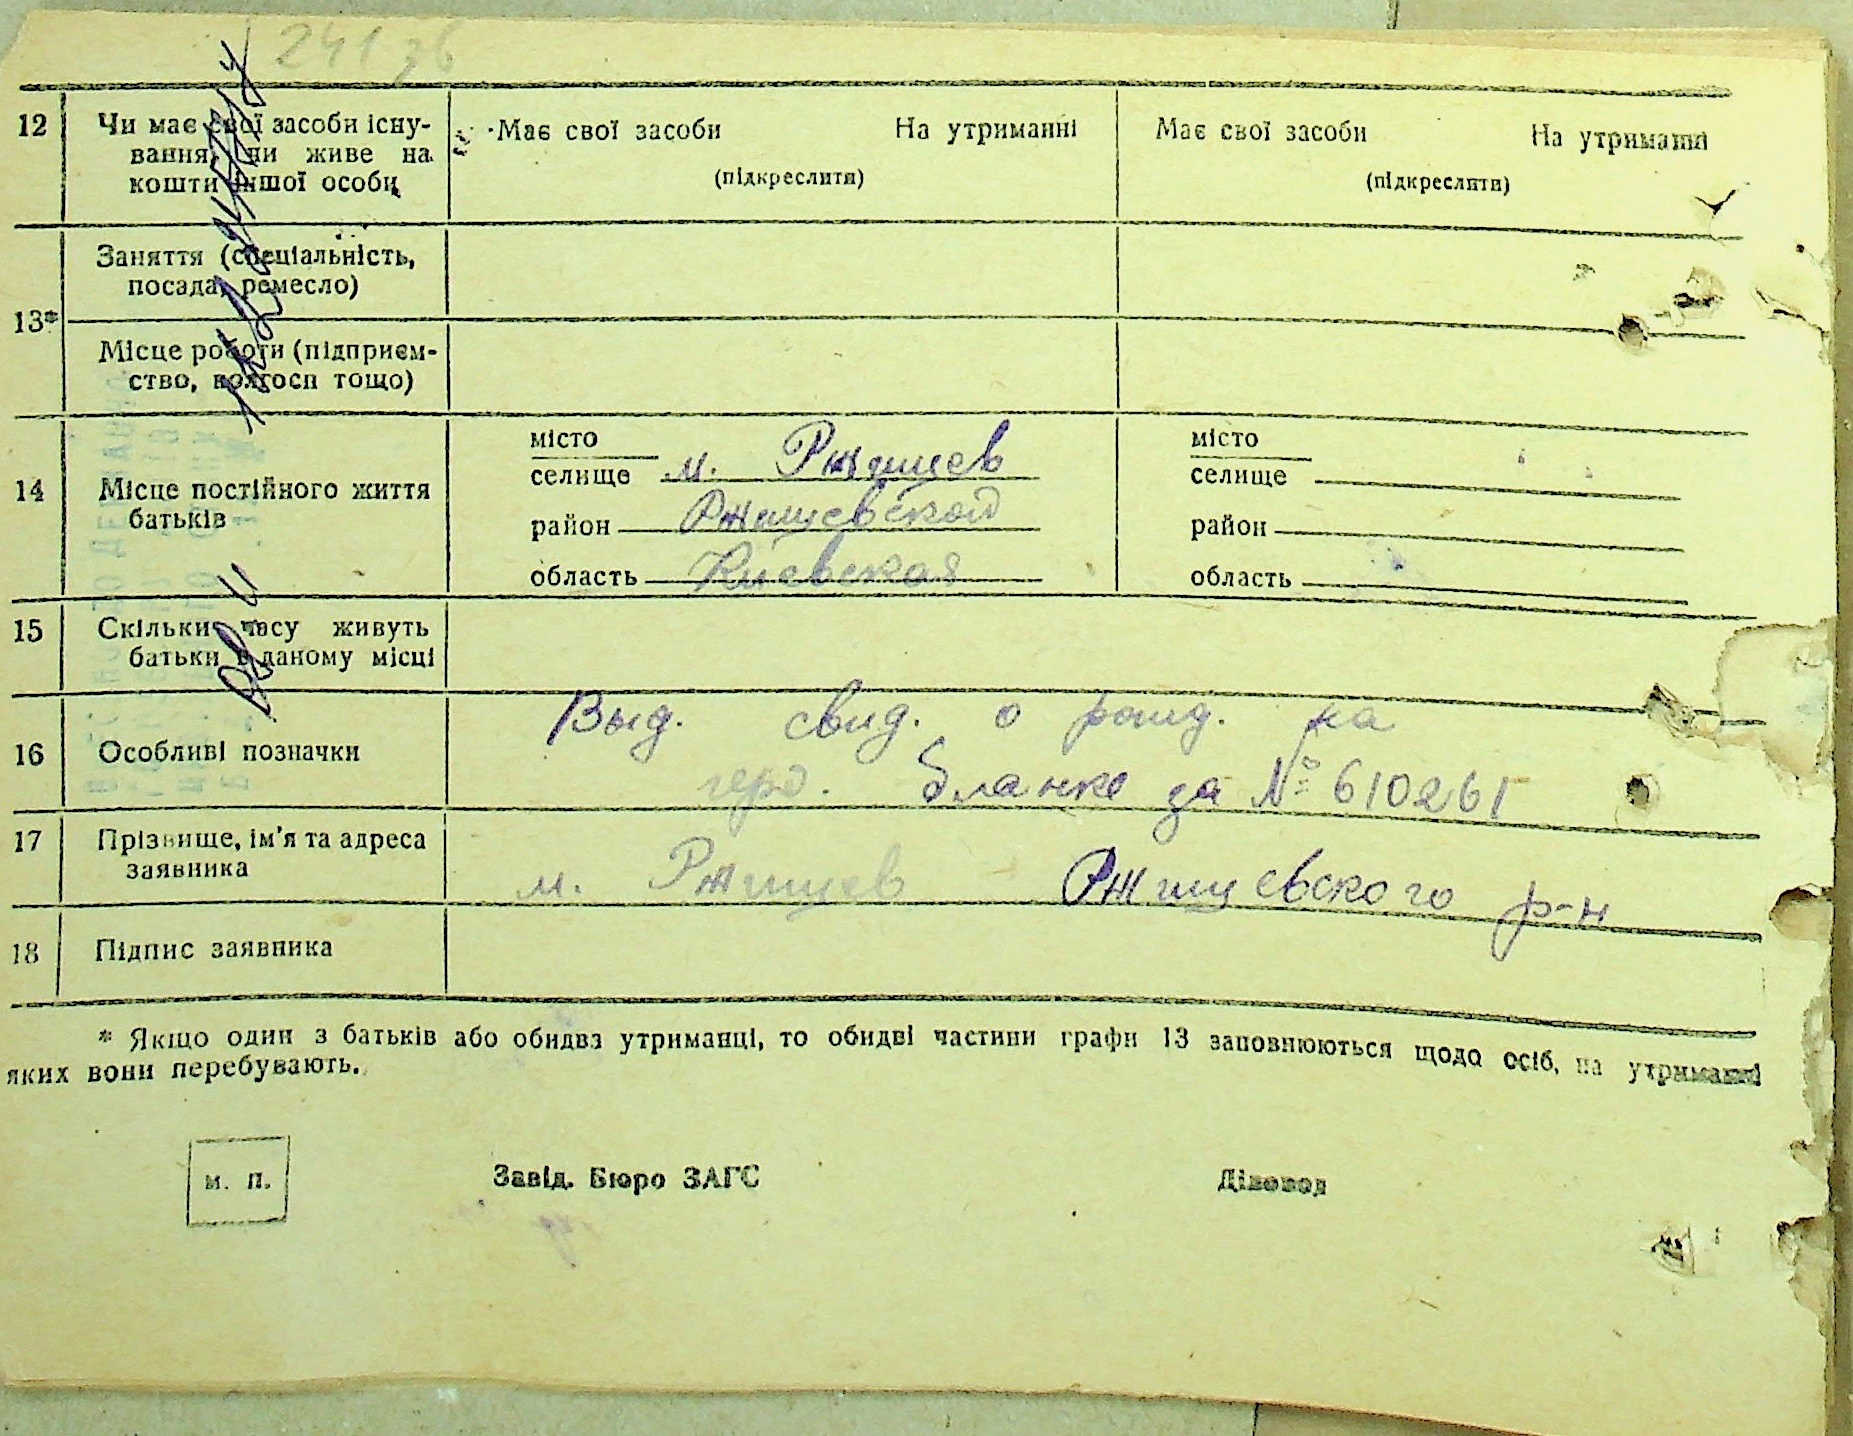 241 зв
12 Чи має свої засоби існу-
вання, чи живе на
кошти іншої особи
Має свої засоби На утриманні
(підкреслити)
Має свої засоби На утриманні
(підкреслити)
13* Заняття (спеціальність,
посада, ремесло)
Місце роботи (підприєм-
ство, колгосп тощо)
14 Місце постійного життя
батьків
місто
селище м. Ржищев
район Ржищевской
область Киевская
місто
селище
район
область
15 Скільки часу живуть
батьки в даному місці
16 Особливі позначки
Выд. свид. о рожд. на
герб. бланке за № 610261
17 Прізвище, ім'я та адреса
заявника
м. Ржищев Ржищевского р-н
18 Підпис заявника
* Якщо один з батьків або обидва утриманці, то обидві частини графи 13 заповнюються щодо осіб, на утриманні
яких вони перебувають.
м. п.
Завід. Бюро ЗАГС Діловод